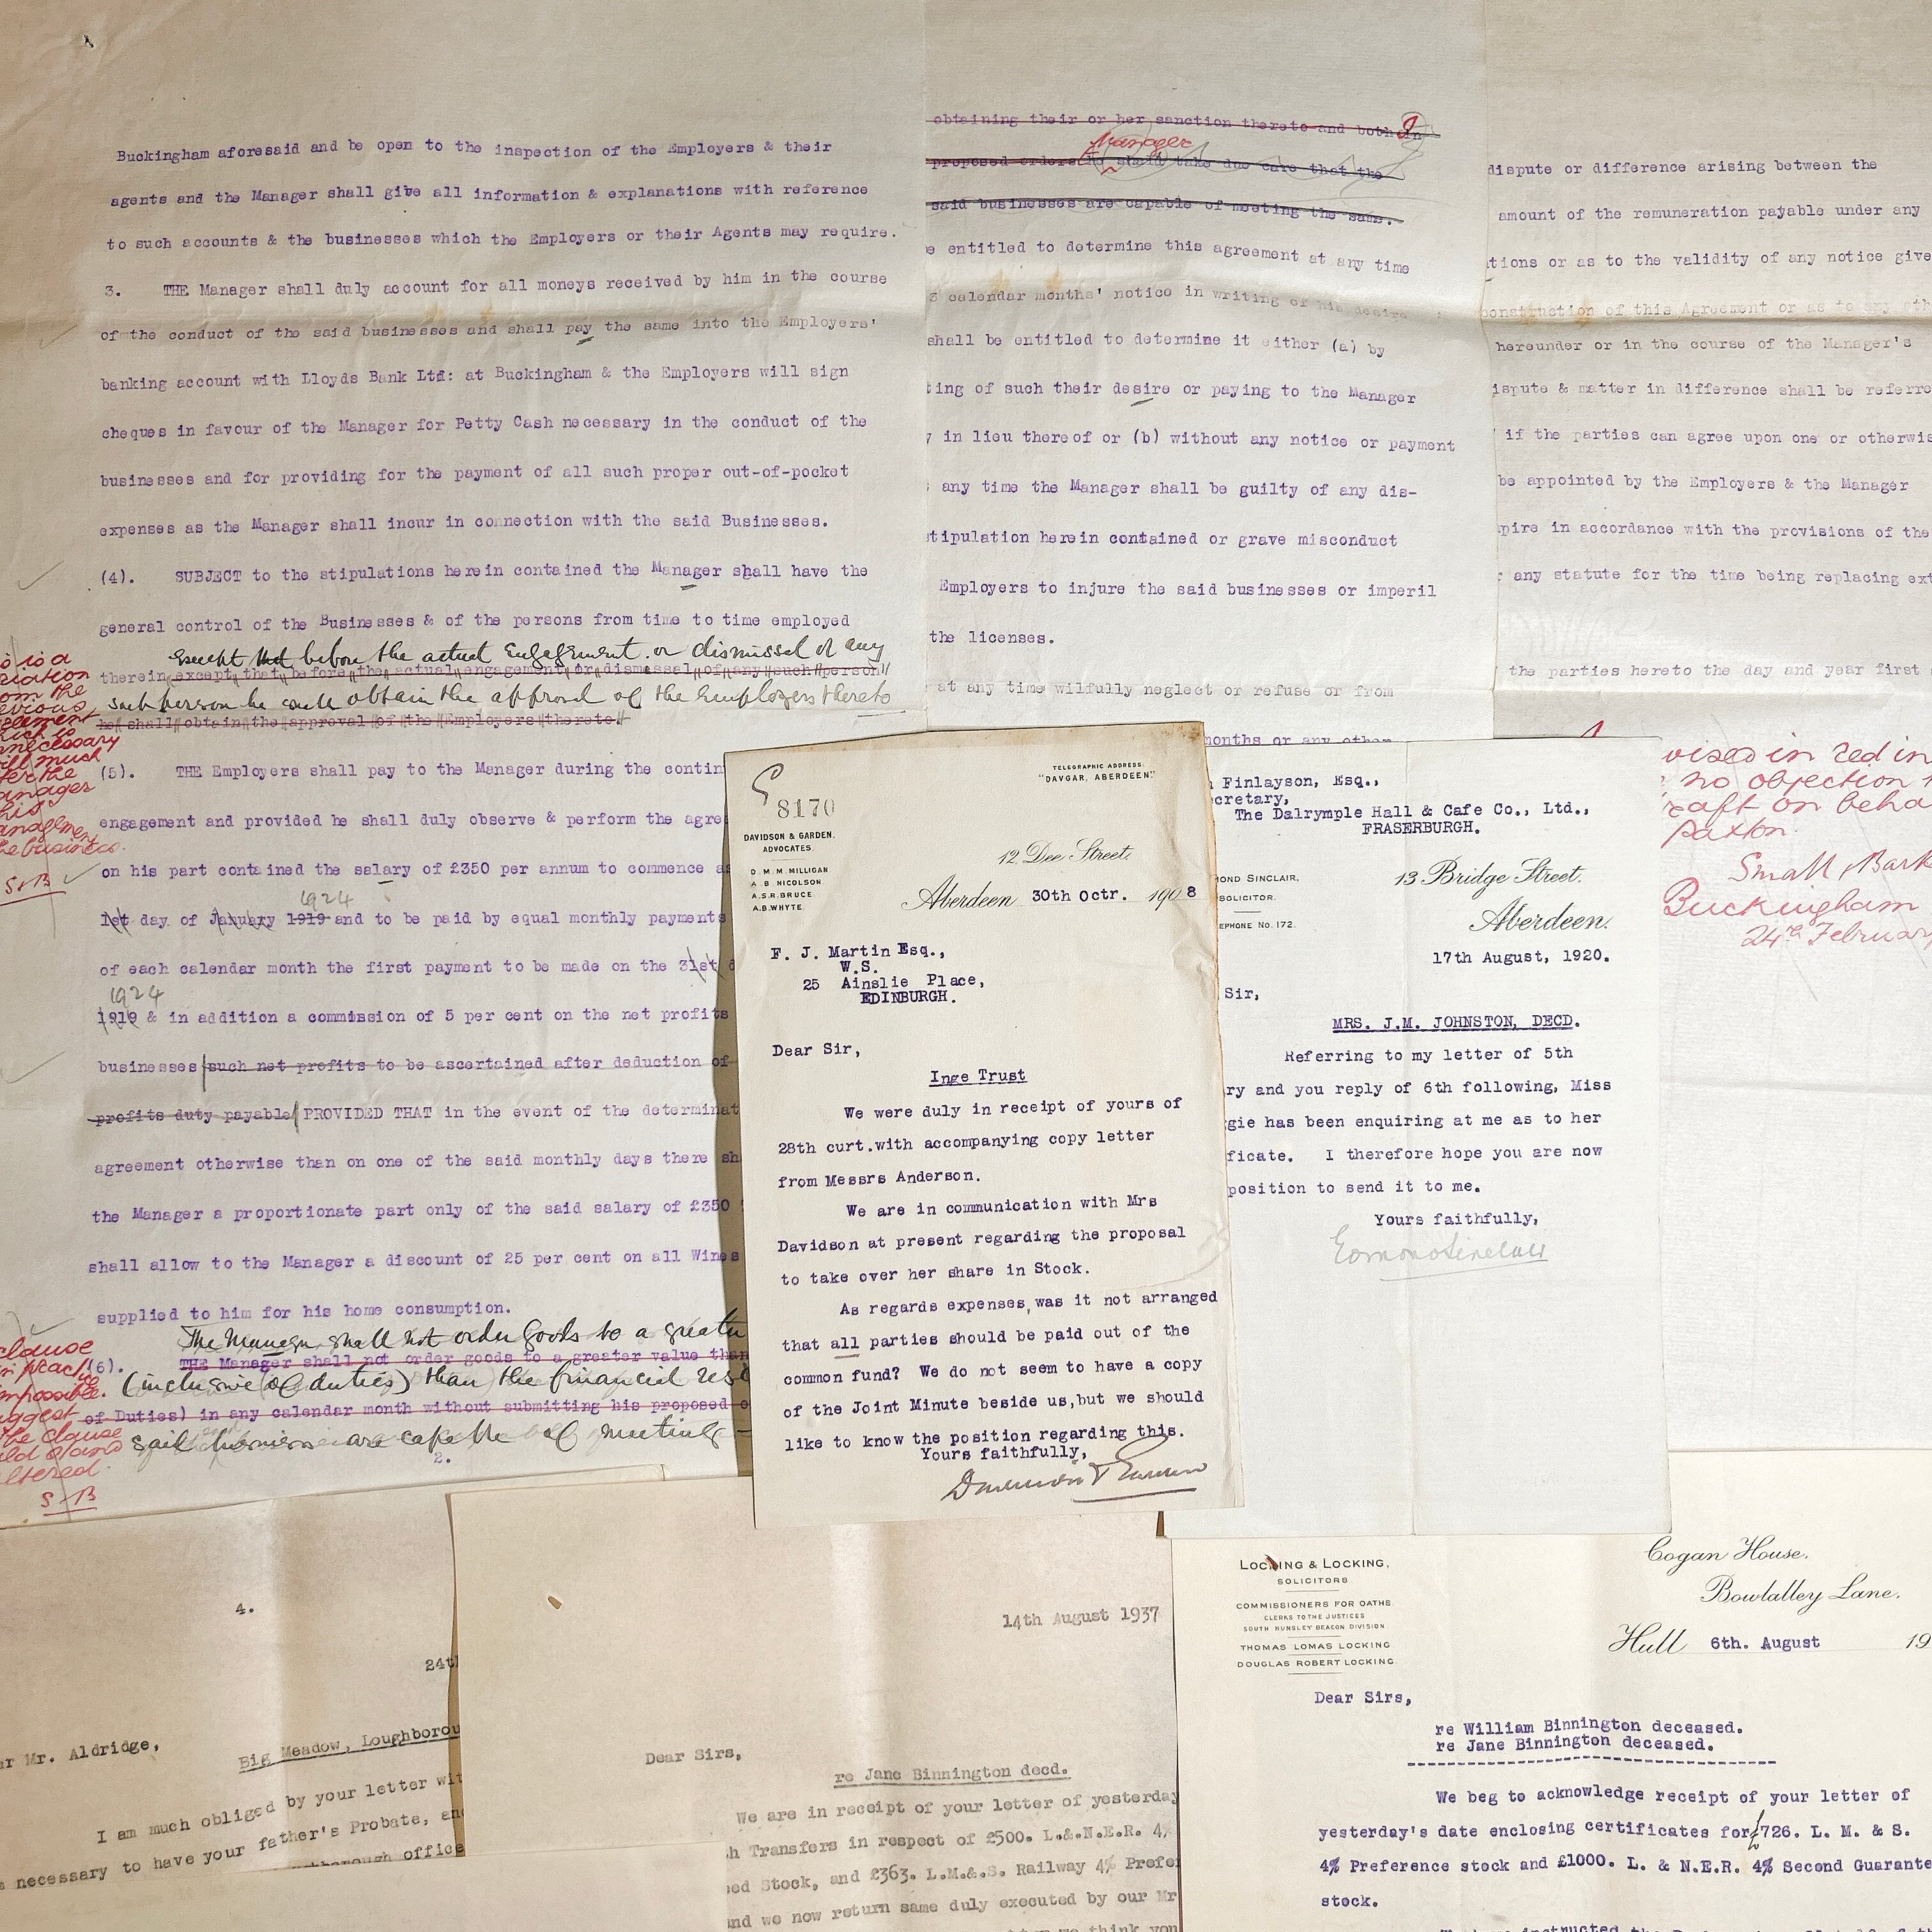 Buckingham aforesaid and be open to the inspection of the Employers & their
agents and the Manager shall give all information & explanations with reference
to such accounts & the businesses which the Employers or their Agents may require.
3. THE Manager shall duly account for all moneys received by him in the course
of the conduct of the said businesses and shall pay the same into the Employers'
banking account with Lloyds Bank Ltd: at Buckingham & the Employers will sign
cheques in favour of the Manager for Petty Cash necessary in the conduct of the
businesses and for providing for the payment of all such proper out-of-pocket
expenses as the Manager shall incur in connection with the said Businesses.
(4). SUBJECT to the stipulations herein contained the Manager shall have the
general control of the Businesses & of the persons from time to time employed
except that before the actual engagement or dismissal of any
therein except that before the actual engagement or dismissal of any such person
such person he shall obtain the approval of the Employers thereto
he shall obtain the approval of the Employers thereto.
(5). THE Employers shall pay to the Manager during the contin
engagement and provided he shall duly observe & perform the agre
on his part contained the salary of £350 per annum to commence as
1924
1st day of January 1919 and to be paid by equal monthly payments
of each calendar month the first payment to be made on the 31st d
1924
1919 & in addition a commission of 5 per cent on the net profits
businesses such net profits to be ascertained after deduction of
profits duty payable PROVIDED THAT in the event of the determinat
agreement otherwise than on one of the said monthly days there sh
the Manager a proportionate part only of the said salary of £350
shall allow to the Manager a discount of 25 per cent on all Wines
supplied to him for his home consumption.
The Manager shall not order goods to a greater
(6). THE Manager shall not order goods to a greater value than
(inclusive of duties) than the financial
of Duties) in any calendar month without submitting his proposed o
said businesses are capable of meeting
2.
is a
from the
which is
unnecessary
will much
the
manager
his
the business.
S & B
clause
in practice
impossible.
suggest
the clause
altered.
S & B
obtaining their or her sanction thereto and both in
Manager
proposed orders he shall take due care that the
said businesses are capable of meeting the same.
e entitled to determine this agreement at any time
3 calendar months' notice in writing of his desire
shall be entitled to determine it either (a) by
ting of such their desire or paying to the Manager
y in lieu thereof or (b) without any notice or payment
any time the Manager shall be guilty of any dis-
stipulation herein contained or grave misconduct
Employers to injure the said businesses or imperil
the licenses.
at any time wilfully neglect or refuse or from
months or any other
dispute or difference arising between the
amount of the remuneration payable under any
tions or as to the validity of any notice give
construction of this Agreement or as to any oth
hereunder or in the course of the Manager's
ispute & matter in difference shall be referre
if the parties can agree upon one or otherwis
be appointed by the Employers & the Manager
pire in accordance with the provisions of the
any statute for the time being replacing ext
the parties hereto the day and year first
vised in red in
no objection
raft on beha
Paxton.
Small & Bark
Buckingham
24th February
8170
TELEGRAPHIC ADDRESS:
"DAVGAR, ABERDEEN."
DAVIDSON & GARDEN,
ADVOCATES.
D. M. M. MILLIGAN
A. B. NICOLSON
A.S.R. BRUCE
A.B. WHYTE.
12 Dee Street,
Aberdeen 30th Octr. 1908
F. J. Martin Esq.,
W.S.
25 Ainslie Place,
EDINBURGH.
Dear Sir,
Inge Trust
We were duly in receipt of yours of
28th curt.with accompanying copy letter
from Messrs Anderson.
We are in communication with Mrs
Davidson at present regarding the proposal
to take over her share in Stock.
As regards expenses,was it not arranged
that all parties should be paid out of the
common fund? We do not seem to have a copy
of the Joint Minute beside us,but we should
like to know the position regarding this.
Yours faithfully,
Davidson & Garden
Finlayson, Esq.,
cretary,
The Dalrymple Hall & Cafe Co., Ltd.,
FRASERBURGH.
OND SINCLAIR,
SOLICITOR.
EPHONE No. 172.
13 Bridge Street.
Aberdeen.
17th August, 1920.
Sir,
MRS. J.M. JOHNSTON, DECD.
Referring to my letter of 5th
ry and you reply of 6th following, Miss
gie has been enquiring at me as to her
ficate. I therefore hope you are now
position to send it to me.
Yours faithfully,
Edmond Sinclair
4.
24th
ar Mr. Aldridge,
Big Meadow, Loughborou
I am much obliged by your letter wit
necessary to have your father's Probate, and
ghborough office
14th August 1937
Dear Sirs,
re Jane Binnington decd.
We are in receipt of your letter of yesterday
h Transfers in respect of £500. L.&.N.E.R. 4%
ed Stock, and £363. L.M.&.S. Railway 4% Prefe
and we now return same duly executed by our Mr
we think you
LOCKING & LOCKING,
SOLICITORS
COMMISSIONERS FOR OATHS
CLERKS TO THE JUSTICES
SOUTH HUNSLEY BEACON DIVISION
THOMAS LOMAS LOCKING
DOUGLAS ROBERT LOCKING
Cogan House,
Bowlalley Lane,
Hull 6th. August 19
Dear Sirs,
re William Binnington deceased.
re Jane Binnington deceased.
We beg to acknowledge receipt of your letter of
yesterday's date enclosing certificates for £726. L. M. & S.
4% Preference stock and £1000. L. & N.E.R. 4% Second Guarante
stock.